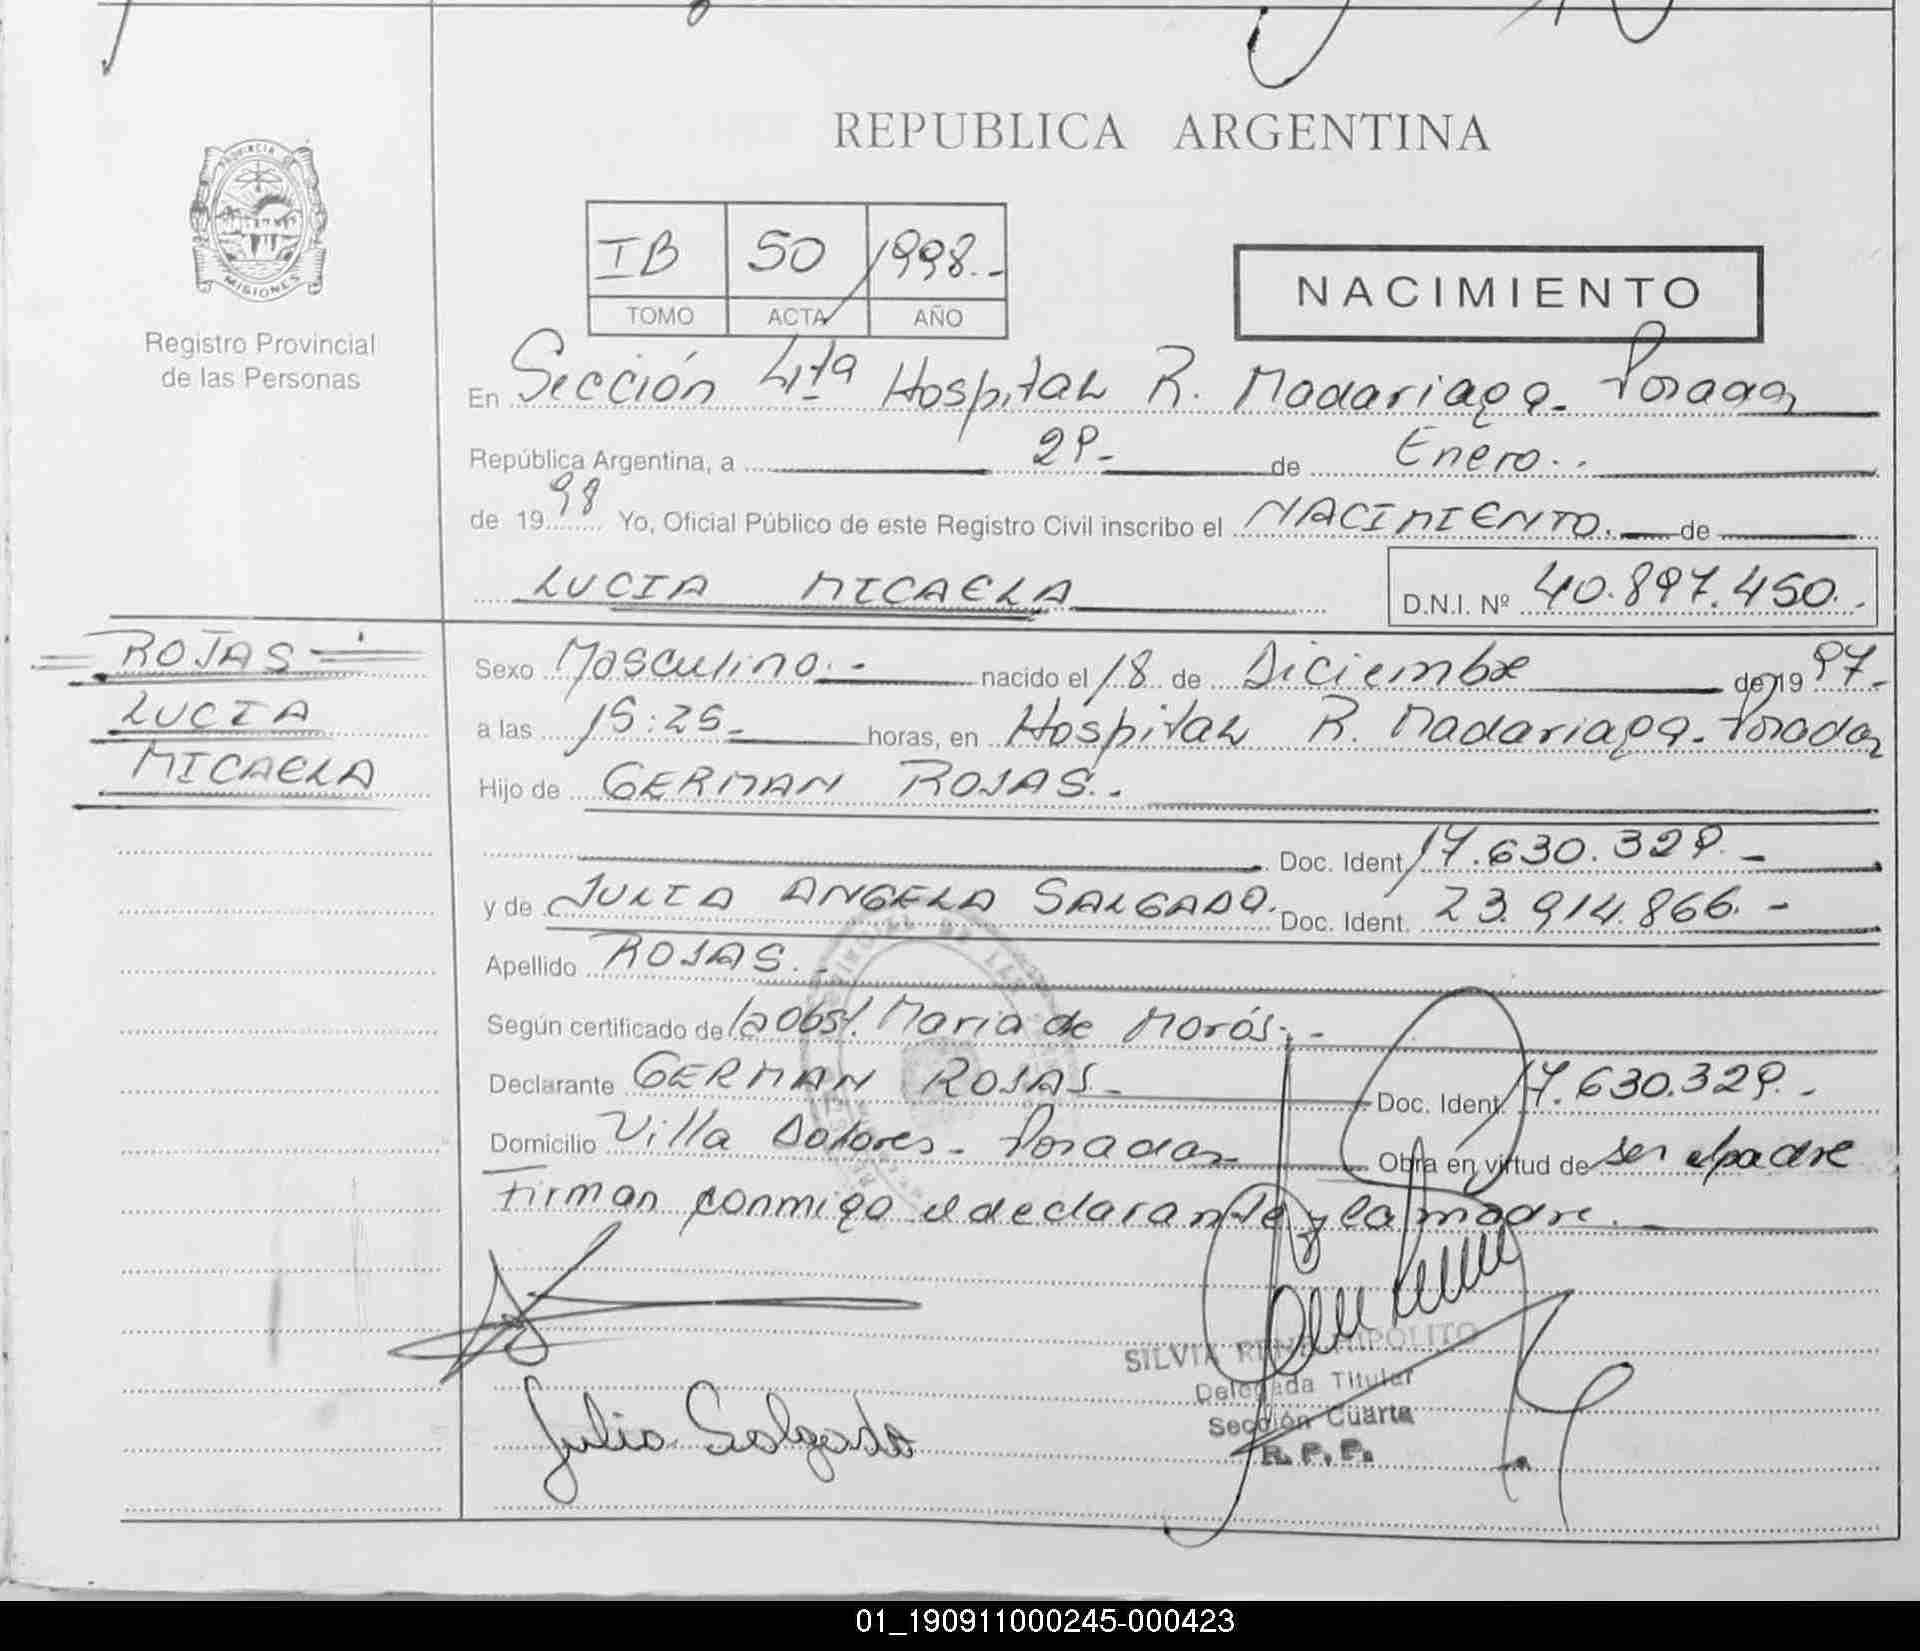 REPUBLICA ARGENTINA
PROVINCIA DE
MISIONES
Registro Provincial
de las Personas
IB 50 1998.-
TOMO ACTA AÑO
NACIMIENTO
En Sección 4ta Hospital R. Madariaga - Posadas
República Argentina, a 29.- de Enero.-
de 1998 Yo, Oficial Público de este Registro Civil inscribo el NACIMIENTO. de
LUCIA MICAELA
D.N.I. Nº 40.897.450.-
ROJAS
LUCIA
MICAELA
Sexo Masculino.- nacido el 18 de Diciembre de 1997.-
a las 15:25.- horas, en Hospital R. Madariaga - Posadas
Hijo de GERMAN ROJAS.-
Doc. Ident. 17.630.329.-
y de JULIA ANGELA SALGADO. Doc. Ident. 23.914.866.-
Apellido ROJAS.-
Según certificado de la Obst. Maria de Morós.-
Declarante GERMAN ROJAS.- Doc. Ident. 17.630.329.-
Domicilio Villa Dolores - Posadas Obra en virtud de ser el padre
Firman conmigo el declarante y la madre.
Julia Salgado
SILVIA RENE HIPOLITO
Delegada Titular
Sección Cuarta
R. P. P.
01_190911000245-000423